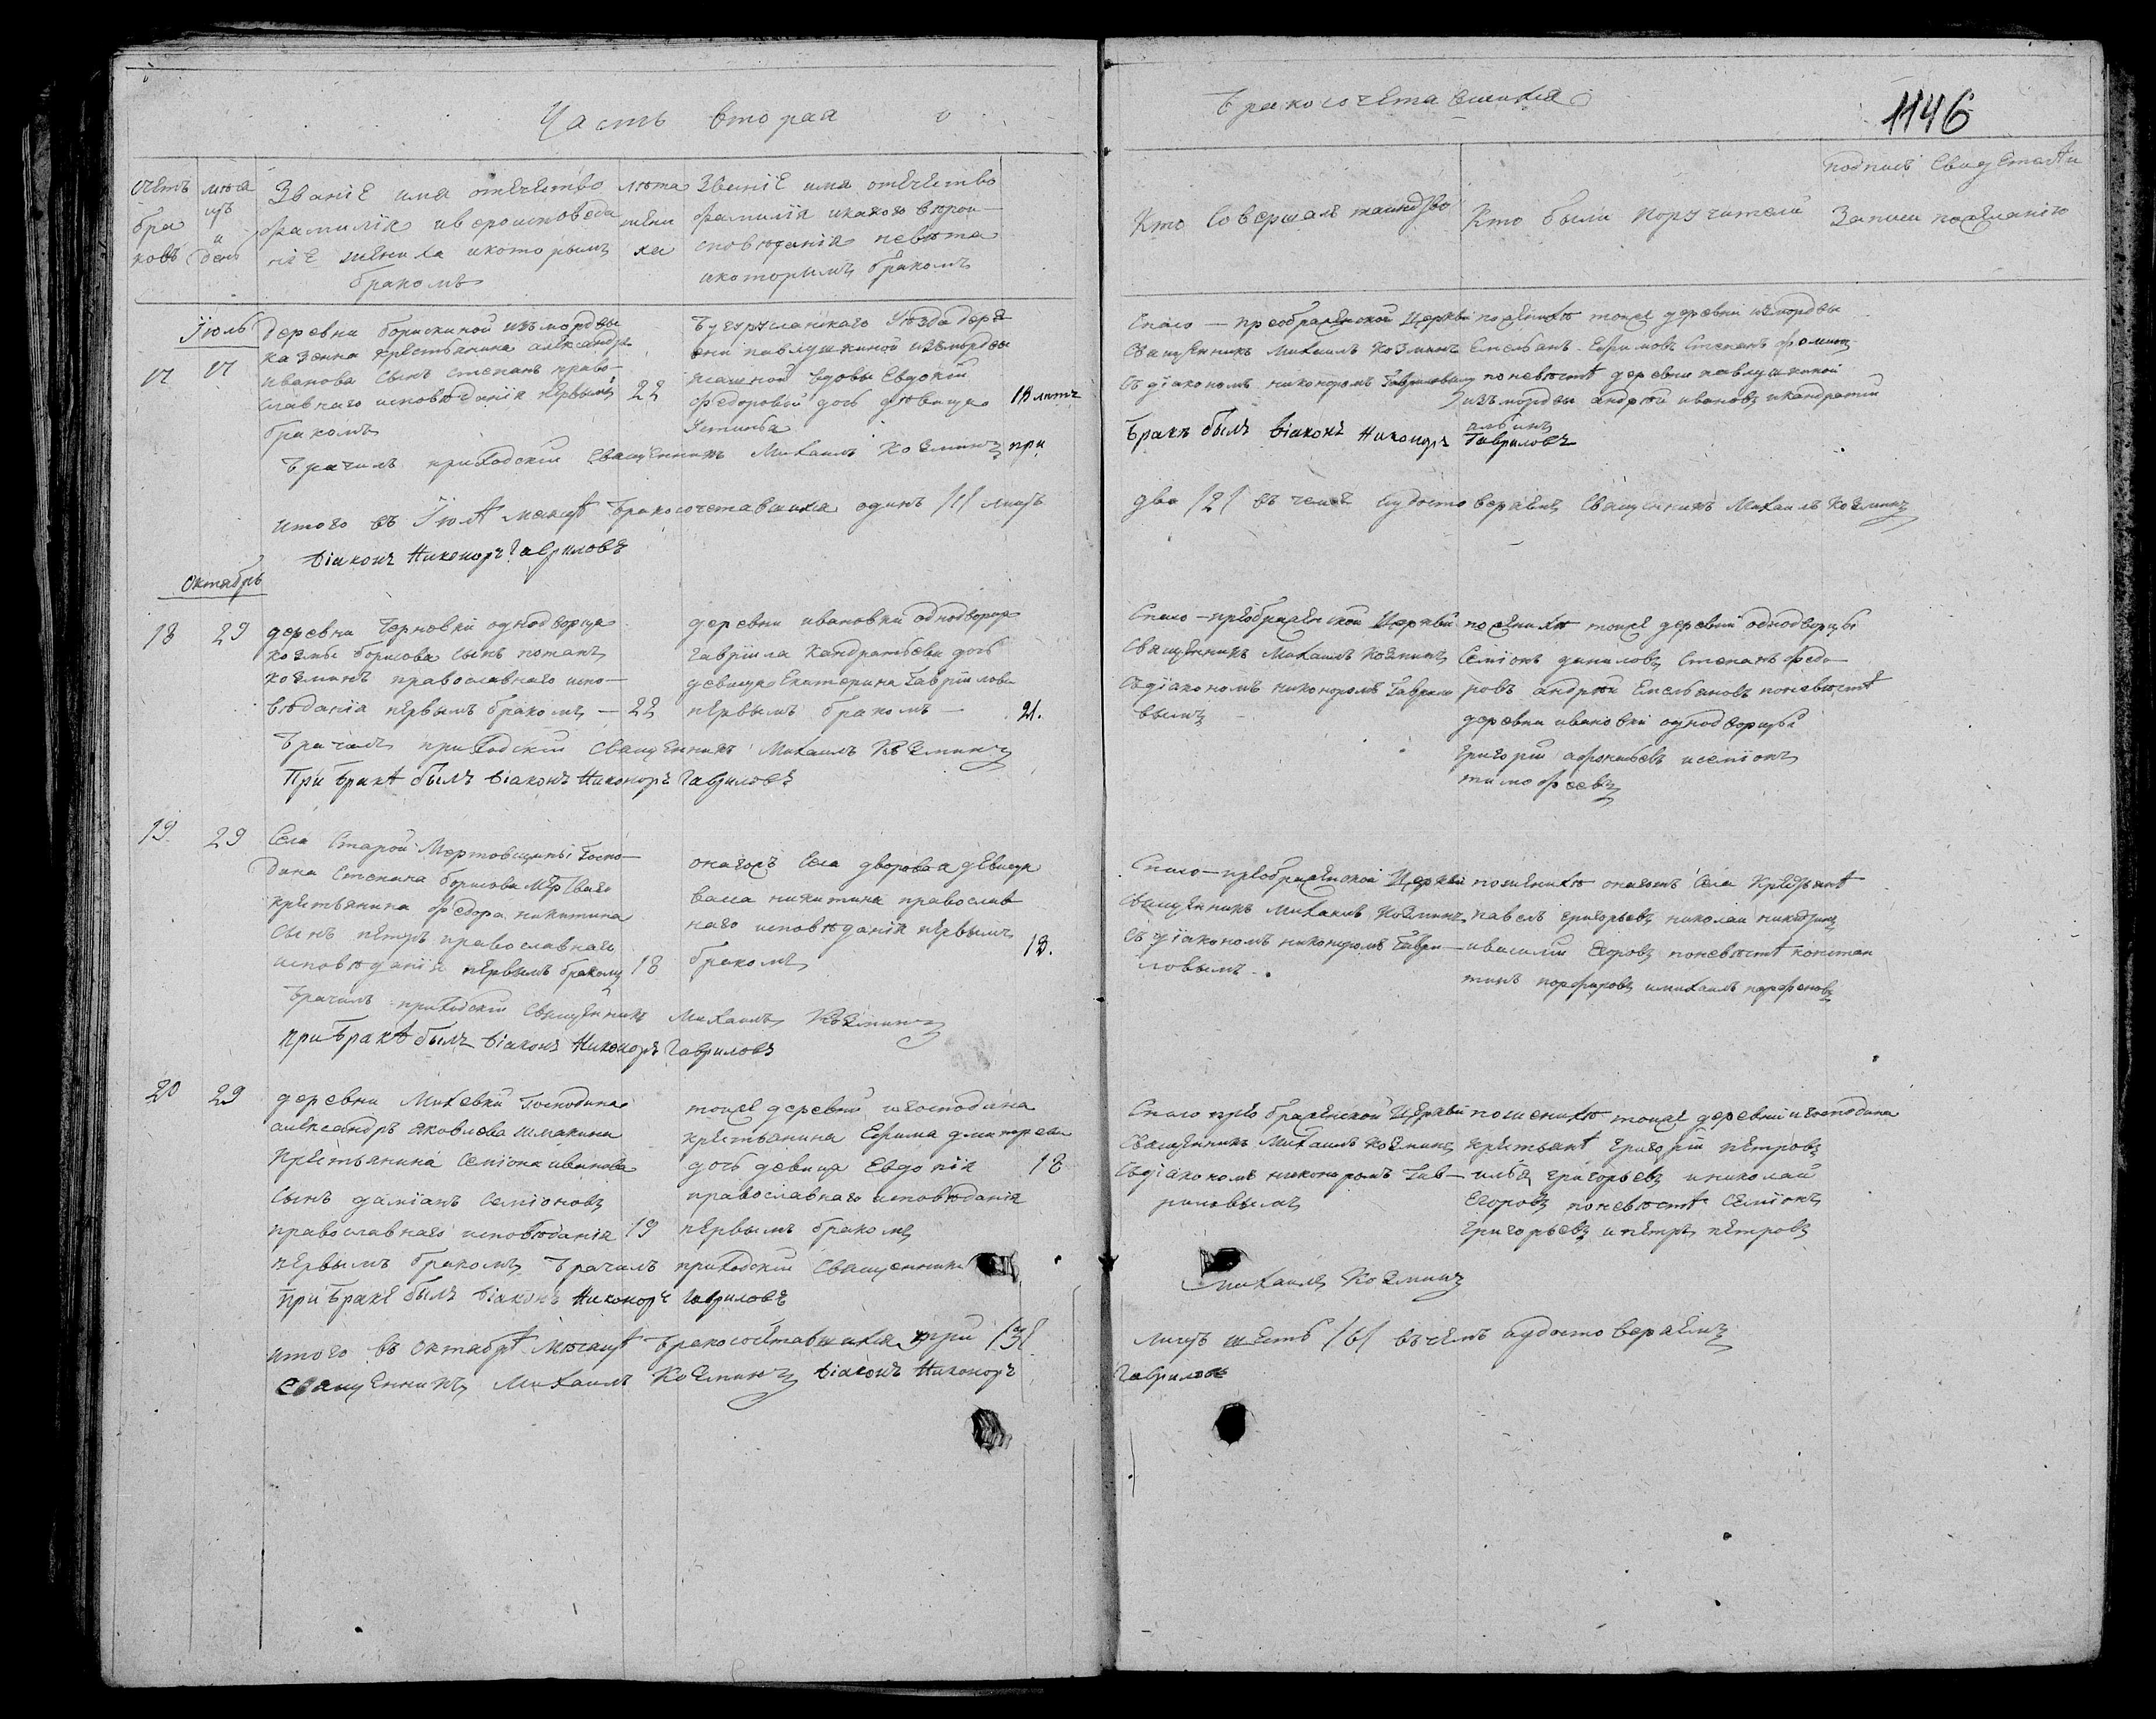 Часть вторая о
Бракосочетавшихся
1146
счетъ браковъ
мѣсяцъ и день
Званiе имя отечество
фамилiя и вероисповеда
нiе жениха и которымъ
бракомъ
лѣта жени ха
Званiе имя отечество
фамилiя и какого вѣрои-
споведанiя невѣста
и которымъ бракомъ
Кто совершалъ таинство
Кто были поручители
подпись свидетели
записи по желанiю
Iюль
17 17
деревни борискиной изъ мордвы
казенна крестьянина александра
иванова сынъ степанъ право-
славнаго исповѣданiя первымъ 22
бракомъ
Бугурусланскаго уѣзда дере
вни павлушкиной изъ мордвы
вдовы Евдокiи
федоровой дочь дѣвица 18 летъ
Устинья
Спасо-преображенской церкви
священникъ михаилъ козминъ
съ дiакономъ никоноромъ Гавриловымъ
по женихѣ тойже деревни изъ мордвы
Емельянъ Ефимовъ степанъ фоминъ
по невѣстѣ деревни павлушкиной
изъ мордвы андрей ивановъ и кандратiй
Брачилъ приходскiй священникъ Михаилъ Козминъ при
Бракѣ былъ дiаконъ Никоноръ Гавриловъ
итого въ Iюлѣ месяцѣ бракосочетавшихся одинъ /1/ лицъ
два /2/ въ чемъ и удостоверяемъ священникъ Михаилъ Козминъ
дiаконъ Никоноръ Гавриловъ
Октябрь
18 29
деревни Черновки однодворца
козмы борисова сынъ потапъ
козминъ православнаго испо-
вѣданiя первымъ бракомъ - 22
деревни ивановки однодворца
гаврiила кандратьева дочь
девица Екатерина Гаврiилова
первымъ бракомъ - 21.
Спасо-преображенской церкви
священникъ михаилъ козминъ
съ дiакономъ никоноромъ Гаврило
вымъ
по женихѣ тойже деревни однодворцы
семiонъ даниловъ степанъ федо-
ровъ андрей Емельяновъ по невѣстѣ
деревни ивановки однодворцы
григорiй афонасьевъ и семiонъ
тимофеевъ
Брачилъ приходскiй священникъ Михаилъ Козминъ
При бракѣ былъ дiаконъ Никоноръ Гавриловъ
19 29
Села Старой Мертовщины Госпо-
дина Степана борисова Мертваго
крестьянина федора никитина
сынъ петръ православнаго
исповѣданiя первымъ бракомъ 18
онагожъ села дворовая девица
васса никитина православ
наго исповѣданiя первымъ
бракомъ 18.
Спасо-преображенской церкви
священникъ михаилъ козминъ
съ дiакономъ никоноромъ Гаври-
ловымъ.
по женихѣ онагожъ села крестьянѣ
павелъ григорьевъ николай
и василiй Егоровъ по невѣстѣ констан
тинъ порфировъ и михаилъ парфеновъ
Брачилъ приходскiй священникъ Михаилъ Козминъ
при Бракѣ былъ дiаконъ Никоноръ Гавриловъ
20 29
деревни Михевки Господина
александръ яковлева шмакина
крестьянина семiона иванова
сынъ дамiанъ семiоновъ
православнаго исповѣданiя 19
первымъ бракомъ
тойже деревни и господина
крестьянина Ефима дмитрева
дочь девица Евдокiя 18
православнаго исповѣданiя
первымъ бракомъ
Спасо преображенской церкви
священникъ михаилъ козминъ
съ дiакономъ никоноромъ Гав-
риловымъ
по женихѣ тойже деревни и господина
крестьянѣ григорiй петровъ
илья григорьевъ и николай
Егоровъ по невѣстѣ семiонъ
григорьевъ и петръ петровъ
Брачилъ приходскiй священникъ
Михаилъ Козминъ
при бракѣ былъ дiаконъ Никоноръ Гавриловъ
итого въ Октябрѣ месяцѣ бракосочетавшихся три /3/
лицъ шесть /6/ въ чемъ и удостоверяемъ
священникъ Михаилъ Козминъ дiаконъ Никоноръ
Гавриловъ